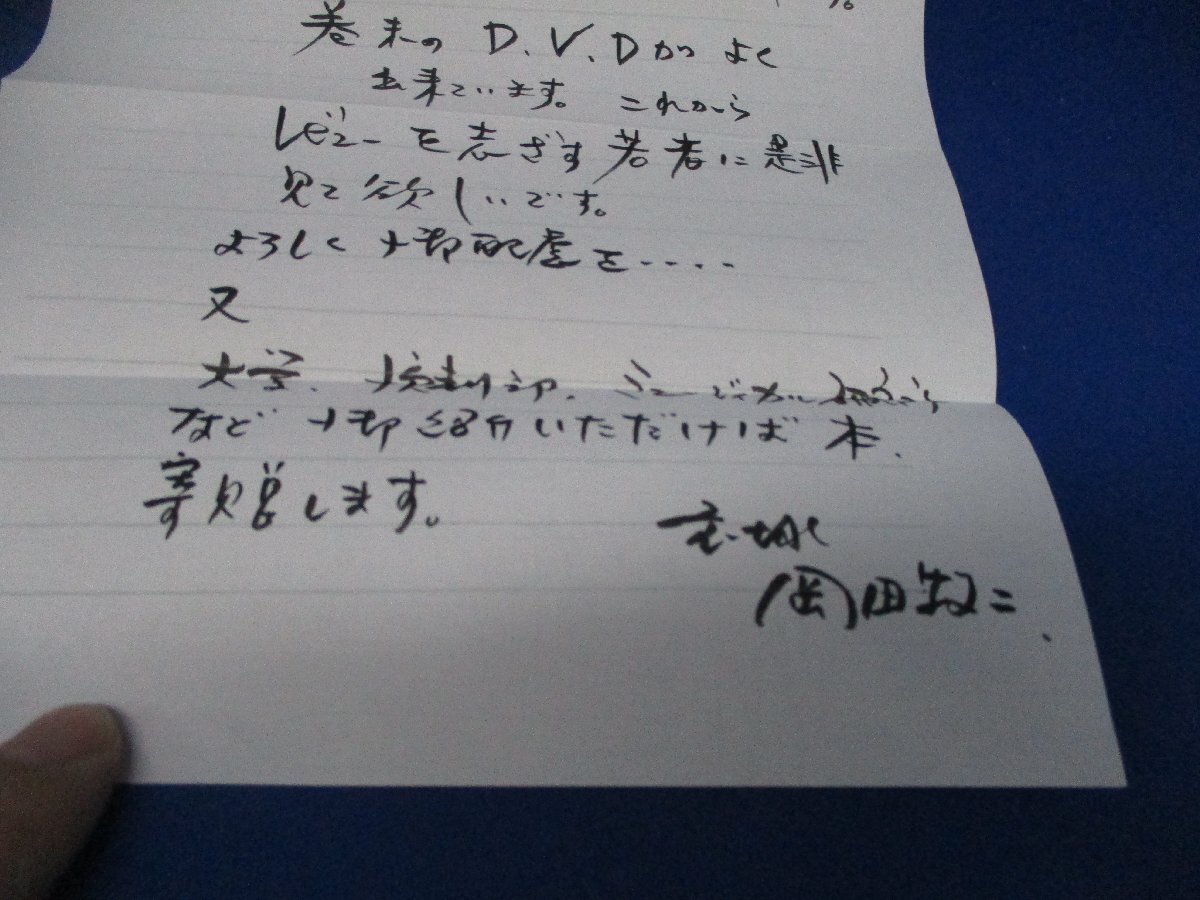 巻末の D.V.Dがよく
出来ています。これから
レビューを志ざす若者に是非
見て欲しいです。
よろしく御配慮を‥‥
又
大学、演劇部、ミュージカル
など 御紹介いただければ 本、
寄贈します。
岡田敬二